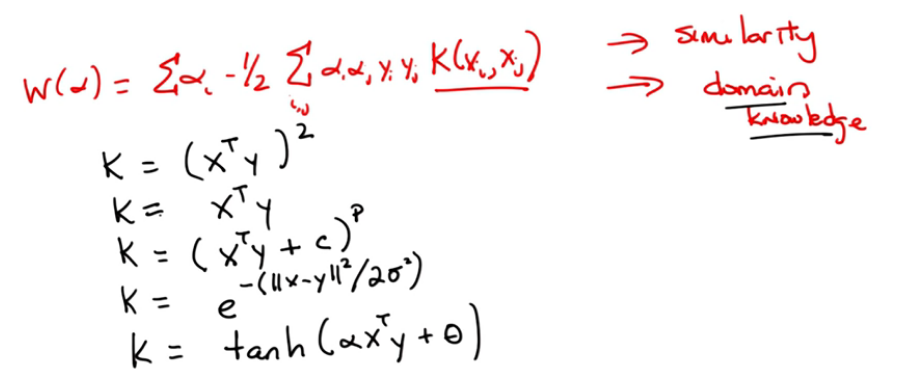 W(α) = Σαᵢ - 1/2 Σᵢ,ⱼ αᵢαⱼ yᵢ yⱼ K(xᵢ, xⱼ) → similarity
→ domain knowledge
K = (xᵀy)²
K = xᵀy
K = (xᵀy + c)ᵖ
K = e^-(||x-y||²/2σ²)
K = tanh(αxᵀy + θ)